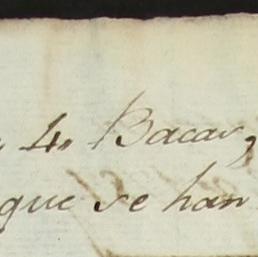 „ 4„ Bacas,
que se han